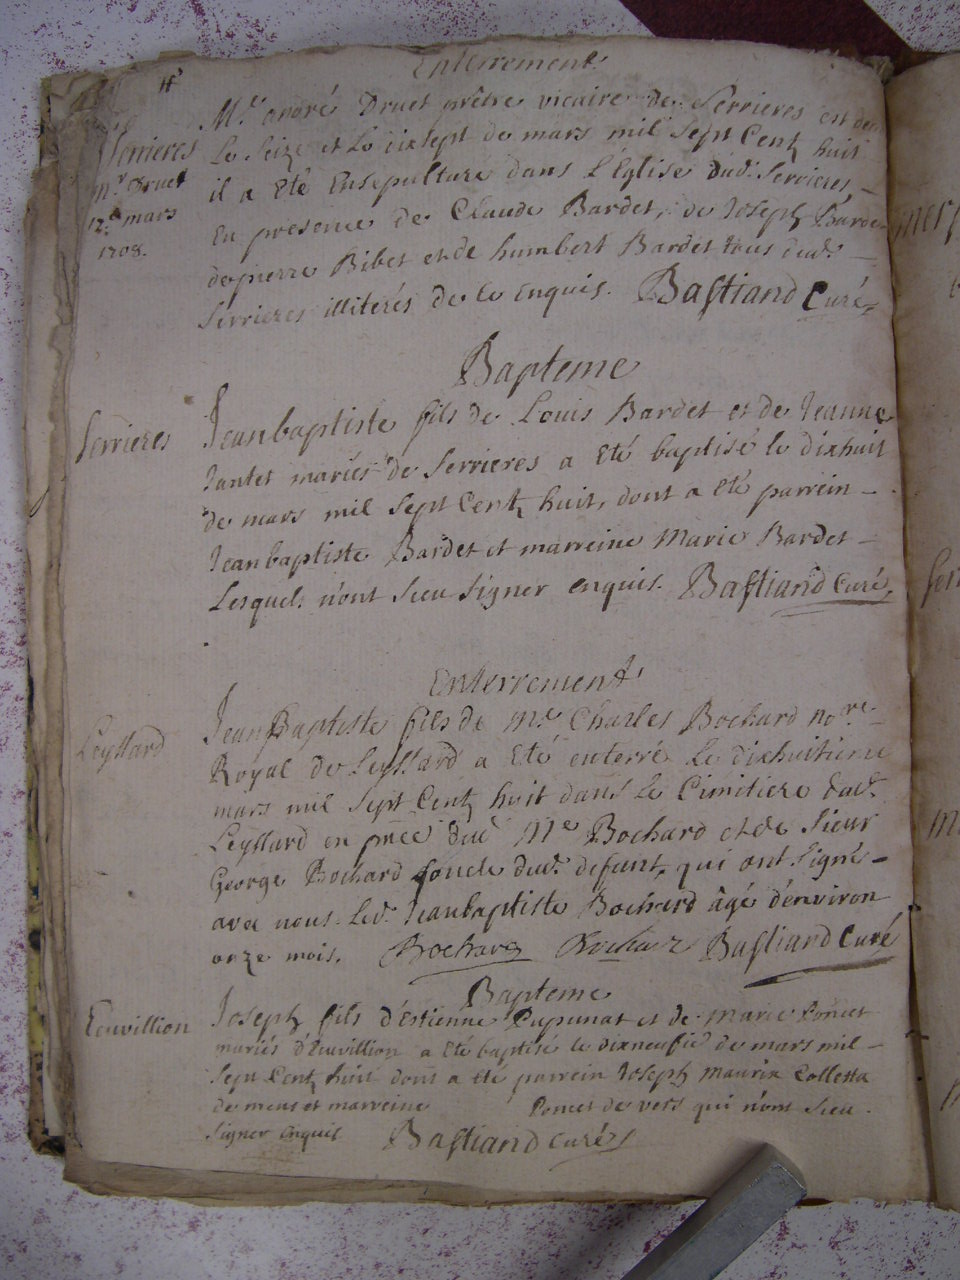 Enterrement.
Serrieres
Mr Druet
12e mars
1708.
Mre André Druet prêtre vicaire de Serrieres est
Le Seize et le dixsept de mars mil sept Centz huit
il a Eté Ensepulturé dans L'Eglise dud. Serrieres -
En presence de Claude Bardet, de Joseph Barde-
de pierre Bibet et de humbert Bardet tous dud. -
Serrieres illiterés de ce enquis. Bastiand Curé,
Bapteme
Serrieres
Jeanbaptiste fils de Louis Bardet et de Jeanne
Jantet mariés de Serrieres a Eté baptisé le dixhuit
de mars mil sept Centz huit, dont a Eté parrein -
Jeanbaptiste Bardet et marreine Marie Bardet -
Lesquels n'ont sceu signer enquis. Bastiand Curé,
Enterrement
Leyssard
Jean Baptiste fils de Me Charles Bochard nore
Royal de Leyssard a Eté enterré le dixhuitieme
mars mil sept Centz huit dans le Cimitiere dud.
Leyssard en pnce dud Me Bochard et de Sieur
George Bochard l'oncle dud. defunt, qui ont signé -
avec nous. Led. Jeanbaptiste Bochard âgé d'environ
onze mois. Bochard Bochard Bastiand Curé
Bapteme
Leuvillion
Joseph fils d'Estienne Pupunat et de Marie Poncet
mariés d'Euvillion a Eté baptisé le dixneufie de mars mil -
sept Centz huit dont a Eté parrein Joseph Maurix Colletta
de mens et marreine Poncet de vers qui n'ont sceu.
signer enquis Bastiand curé